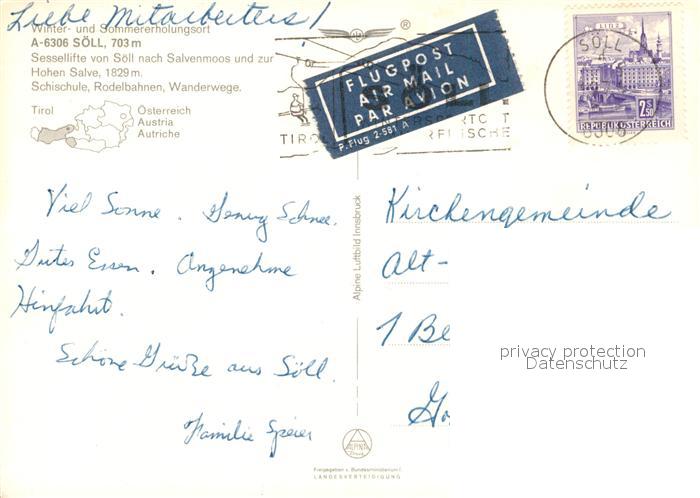 Liebe Mitarbeiters!
Winter- und Sommererholungsort
A-6306 SÖLL, 703 m
Sessellifte von Söll nach Salvenmoos und zur
Hohen Salve, 1829 m.
Schischule, Rodelbahnen, Wanderwege.
Tirol
Österreich
Austria
Autriche
®
FLUGPOST
AIR MAIL
PAR AVION
P. Flug 2-581 A
TIROL
LINZ
SÖLL
2.S 50
REPUBLIK ÖSTERREICH
Viel Sonne. Genug Schnee.
Gutes Essen. Angenehme
Hinfahrt.
Schöne Grüße aus Söll.
Familie Speier
Alpine Luftbild Innsbruck
Kirchengemeinde
Alt-
1 Be
privacy protection
Datenschutz
ALPINE
Freigegeben v. Bundesministerium f.
LANDESVERTEIDIGUNG